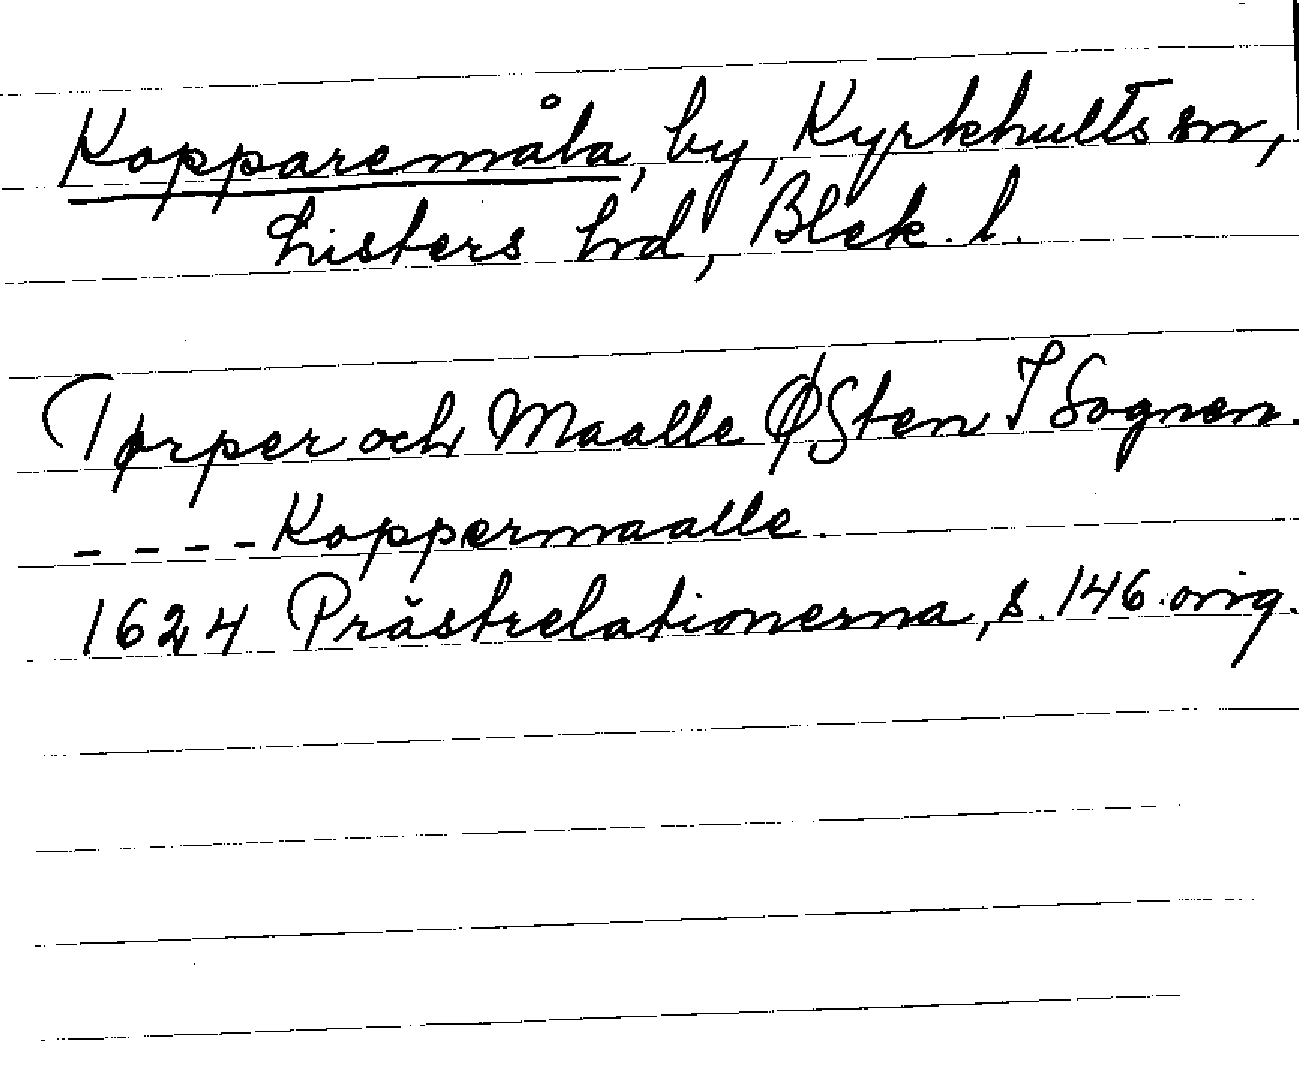 Kopparemåla, by, Kyrkhults sn,
Listers hd, Blek. l.
Tørper och Maalle ØSten I Sognen.
- - - - Koppermaalle.
1624 Prästrelationerna, s. 146 orig.